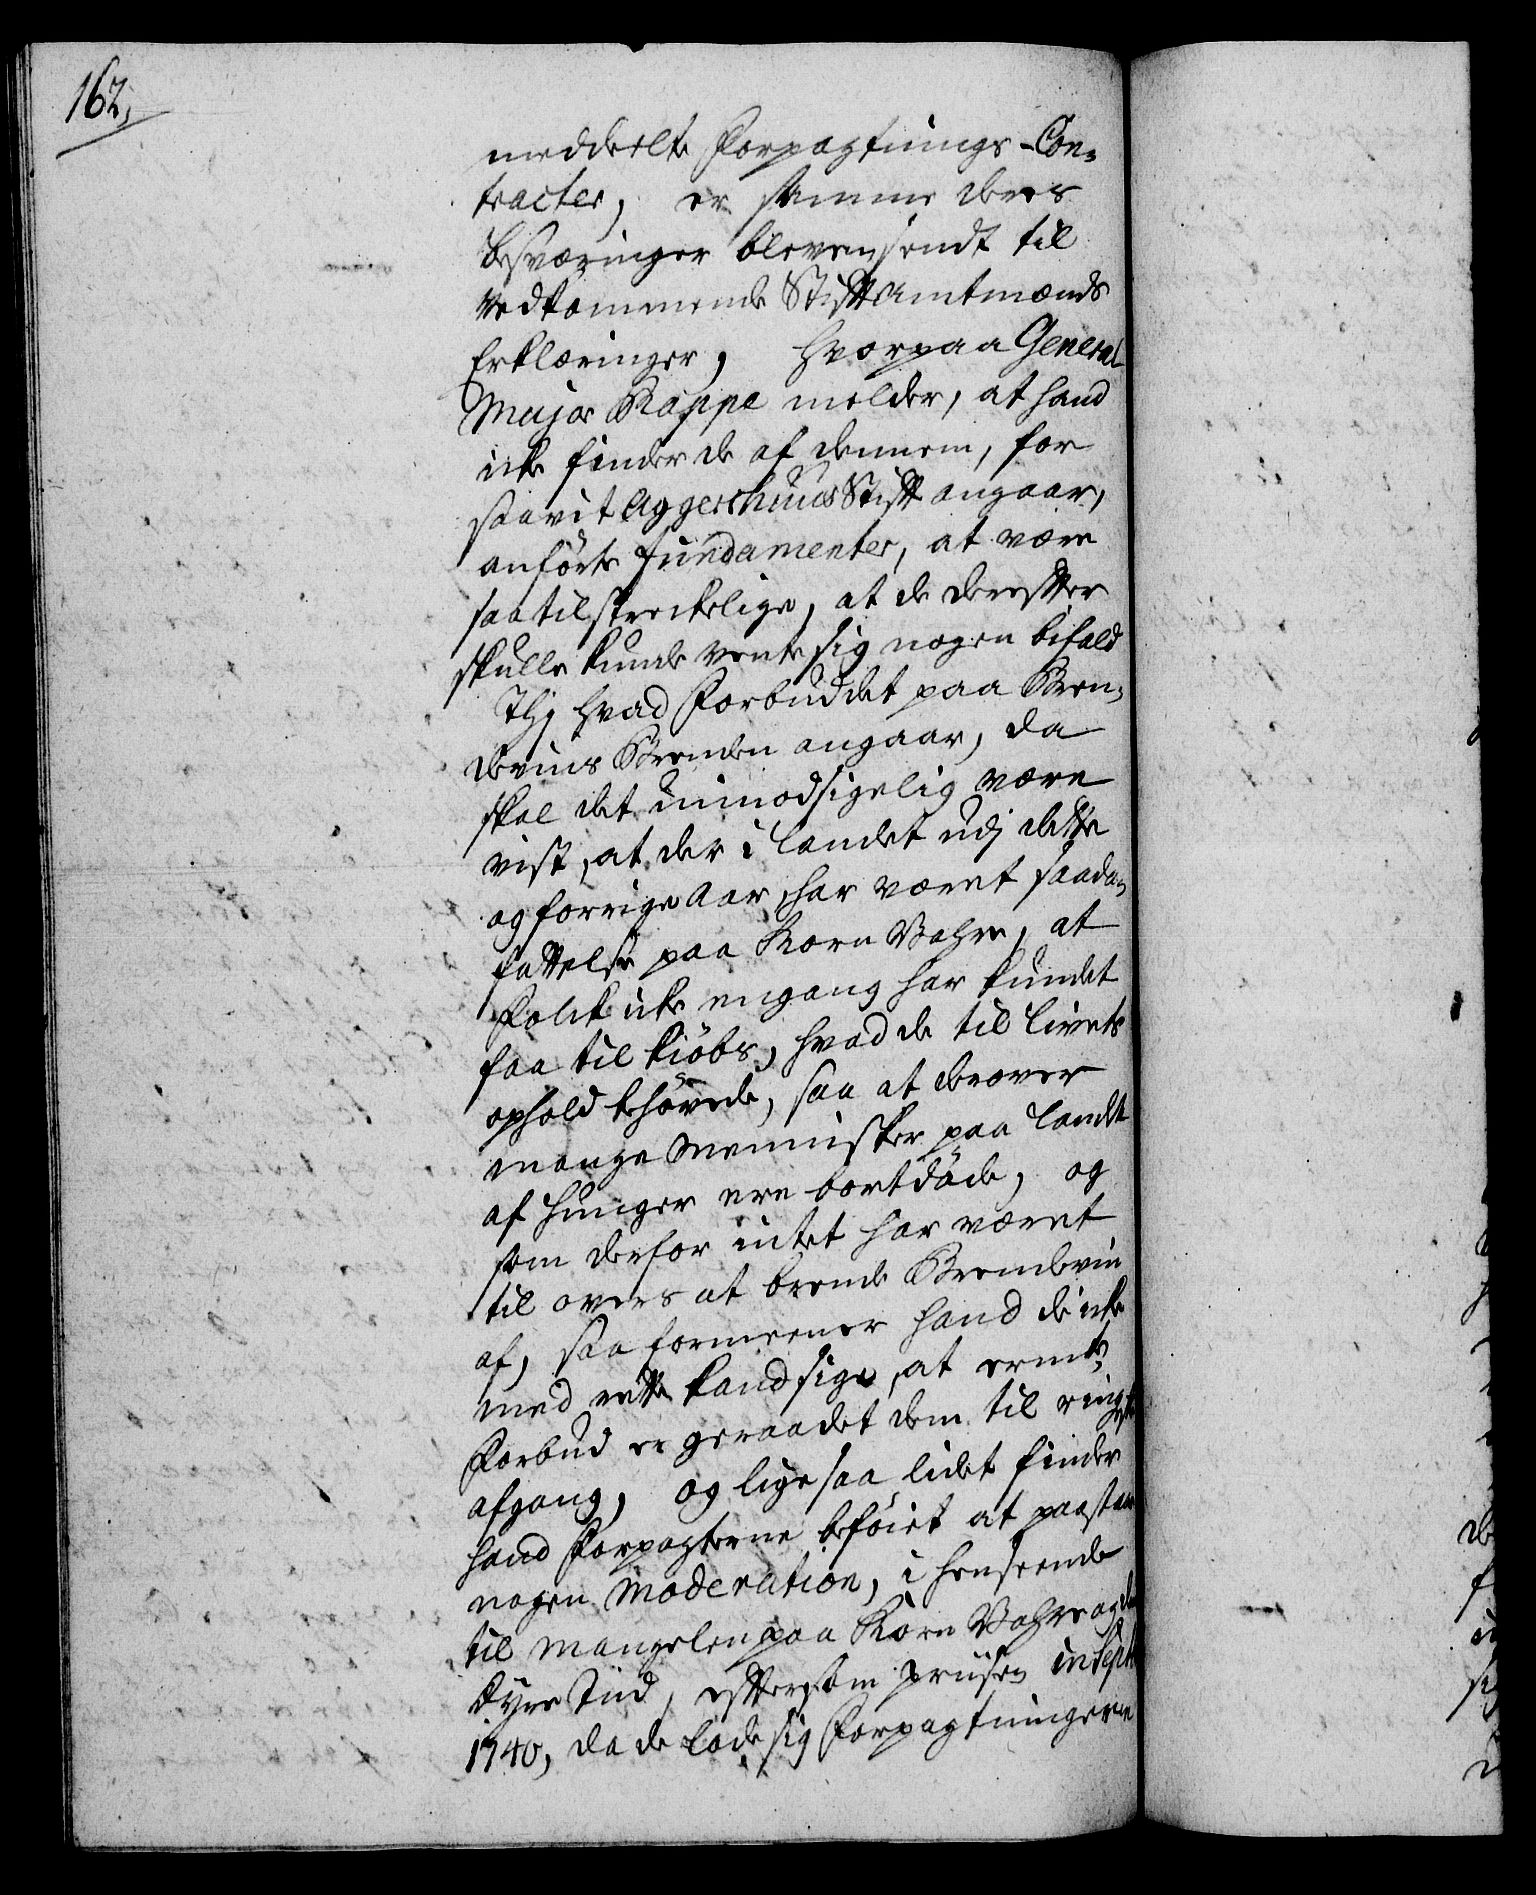 162,
meddeelte Forpagtnings-Con-
tracter, er samme deres
besværinger bleven sendt til
Vedkommende Stift Amtmænds
Erklæringer, hvorpaa General
Major Rappe melder, at hand
icke finder de af dennem, for
saavit Aggershuus Stift angaar,
anförte fundamenter, at være
saa tilstreckelige, at de derefter
skulle kunde vente sig nogen bifald
Thj hvad Forbuddet paa Bren-
deviins Brenden angaar, da
skal det uimodsigelig være
vist, at der i Landet udj dette
og forrige Aar har været saadan
fattelse paa Korn Vahre, at
Folck icke engang har kundet
faa til kiöbs, hvad de til livets
ophold behövede, saa at derover
mange Mennisker paa Landet
af Hunger ere bortdöde, og
som derfor intet har været
til overs at brende Brendeviin
af, saa formeener hand de icke
med rette kand sige, at ermte
Forbud er geraadet dem til ringeste
afgang, og lige saa lidet finder
hand Forpagterne beföiet at paastaae
nogen Moderation, i henseende
til Mangelen paa Korn Vahre og den
dyre Tiid, eftersom Priisen in Sept
1740, da de lode sig Forpagtningerne